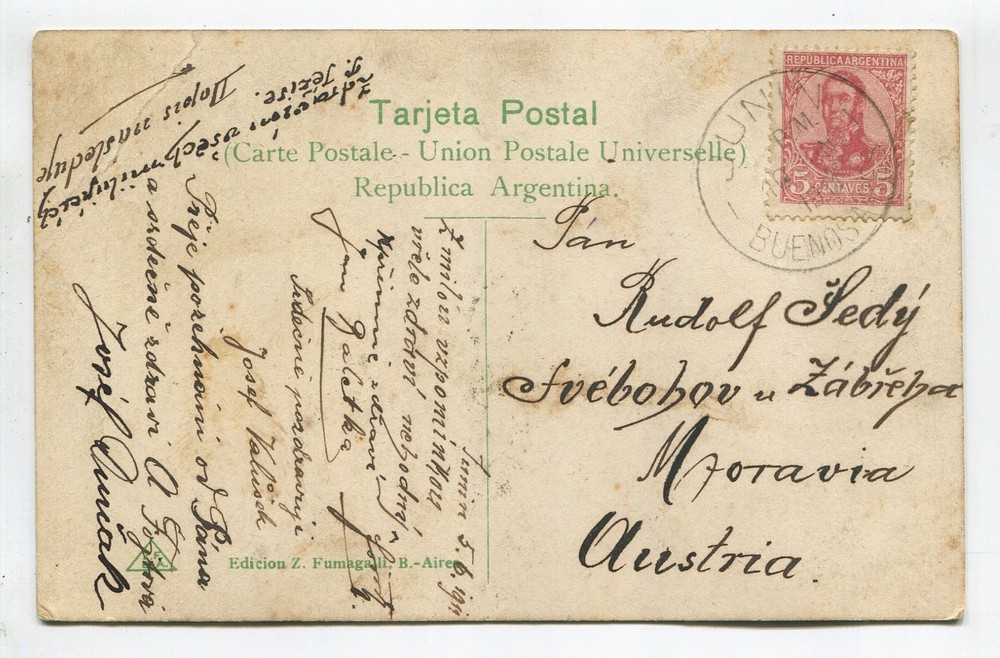 Tarjeta Postal
(Carte Postale - Union Postale Universelle)
Republica Argentina.
REPUBLICA ARGENTINA
5 CENTAVOS 5
JUNIN
BUENOS
Pán
Rudolf Šedý
Svébohov u Zábřeha
Moravia
Austria.
Junin 5.6.
Z milou vzpomínkou
vřele zdraví nehodný
Upřímně zdraví
Jan Galetka
Srdečně pozdravuje
Josef Valášek
Přeje požehnání od Pána
a srdečně zdraví
Josef
všech milujících
p. Ježíše.
Dopis následuje
Edicion Z. Fumagalli. B.-Aires